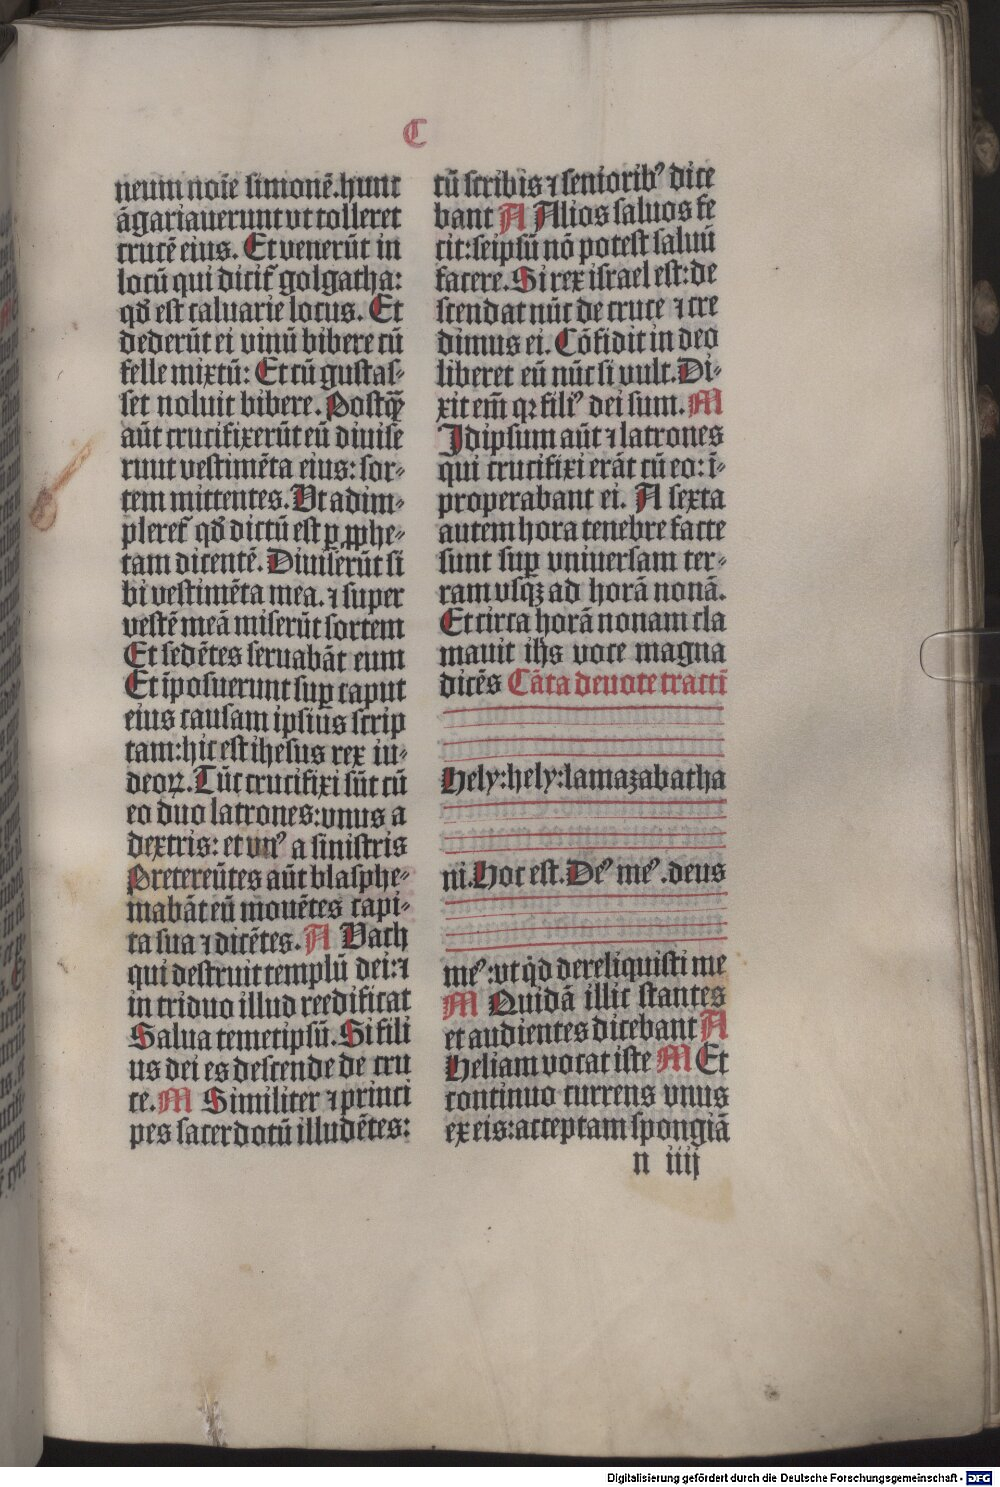 C
neum noīe simonē. hunc
āgariauerunt vt tolleret
crucē eius. Et venerūt in
locū qui dicit᷑ golgatha:
qđ est caluarie locus. Et
dederūt ei vinū bibere cū
felle mixtū: Et cū gustas⸗
set noluit bibere. Postq̄
aūt crucifixerūt eū diuise
runt vestimēta eius: sor⸗
tem mittentes. Vt adim⸗
pleret᷑ qđ dictū est ꝑ ꝓphe⸗
tam dicentē. Diuiserūt si
bi vestimēta mea. ⁊ super
vestē meā miserūt sortem
Et sedētes seruabāt eum
Et īposuerunt suꝑ caput
eius causam ipsius scrip
tam: hic est ihesus rex iu⸗
deoꝝ. Tūc crucifixi sūt cū
eo duo latrones: vnus a
dextris: et vn᷒ a sinistris
Pretereūtes aūt blasphe⸗
mabāt eū mouētes capi⸗
ta sua ⁊ dicētes. A Vach
qui destruit templū dei: ⁊
in triduo illud reedificat
Salua temetipsū. Si fili
us dei es descende de cru
ce. M Similiter ⁊ princi
pes sacerdotū illudētes:
cū scribis ⁊ seniorib᷒ dice
bant A Alios saluos fe
cit: seipsū nō potest saluū
facere. Si rex israel est: de
scendat nūc de cruce ⁊ cre
dimus ei. Cōfidit in deo
liberet eū nūc si vult. Di⸗
xit em̄ qꝛ fili᷒ dei sum. M
Idipsum aūt ⁊ latrones
qui crucifixi erāt cū eo: ī⸗
properabant ei. A sexta
autem hora tenebre facte
sunt suꝑ vniuersam ter⸗
ram vsqꝫ ad horā nonā.
Et circa horā nonam cla
mauit ihs voce magna
dicēs Cāta deuote tracti
Hely: hely: lamazabatha
ni. Hoc est. De᷒ me᷒. deus
me᷒: vt qͥd dereliquisti me
M Quidā illic stantes
et audientes dicebant A
Heliam vocat iste M Et
continuo currens vnus
ex eis: acceptam spongiā
n iiij
Digitalisierung gefördert durch die Deutsche Forschungsgemeinschaft - DFG